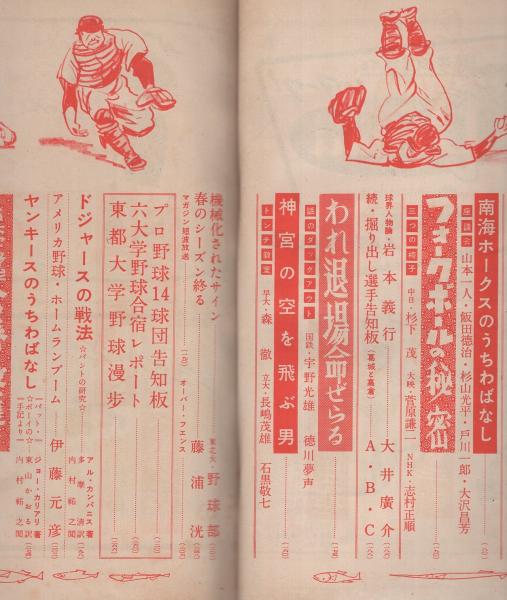 南海ホークスのうちわばなし
座談会 山本一人・飯田徳治・杉山光平・戸川一郎・大沢昌芳
フォークボールの秘密
三つの椅子 中日・杉下 茂 大映・菅原謙二 NHK・志村正順
球界人物論・岩本義行 大井廣介
続・掘り出し選手告知板（葛城と高倉） A・B・C
われ退場命ぜらる
話のダッグアウト 国鉄・宇野光雄 徳川夢声
神宮の空を飛ぶ男
トンチ教室 早大・森 徹 立大・長嶋茂雄 石黒敬七
機械化されたサイン 東北大・野球部
春のシーズン終る 藤浦洸
マガジン短波放送 オーバー・フェンス
プロ野球14球団告知板
六大学野球合宿レポート
東都大学野球漫歩
ドジャースの戦法 アル・カンパニス著
☆バントの研究☆ 多摩清訳
内村祐之閲
アメリカ野球・ホームランブーム 伊藤元彦
ヤンキースのうちわばなし ジョー・カリアリ著
東山かおる訳
内村祐之閲